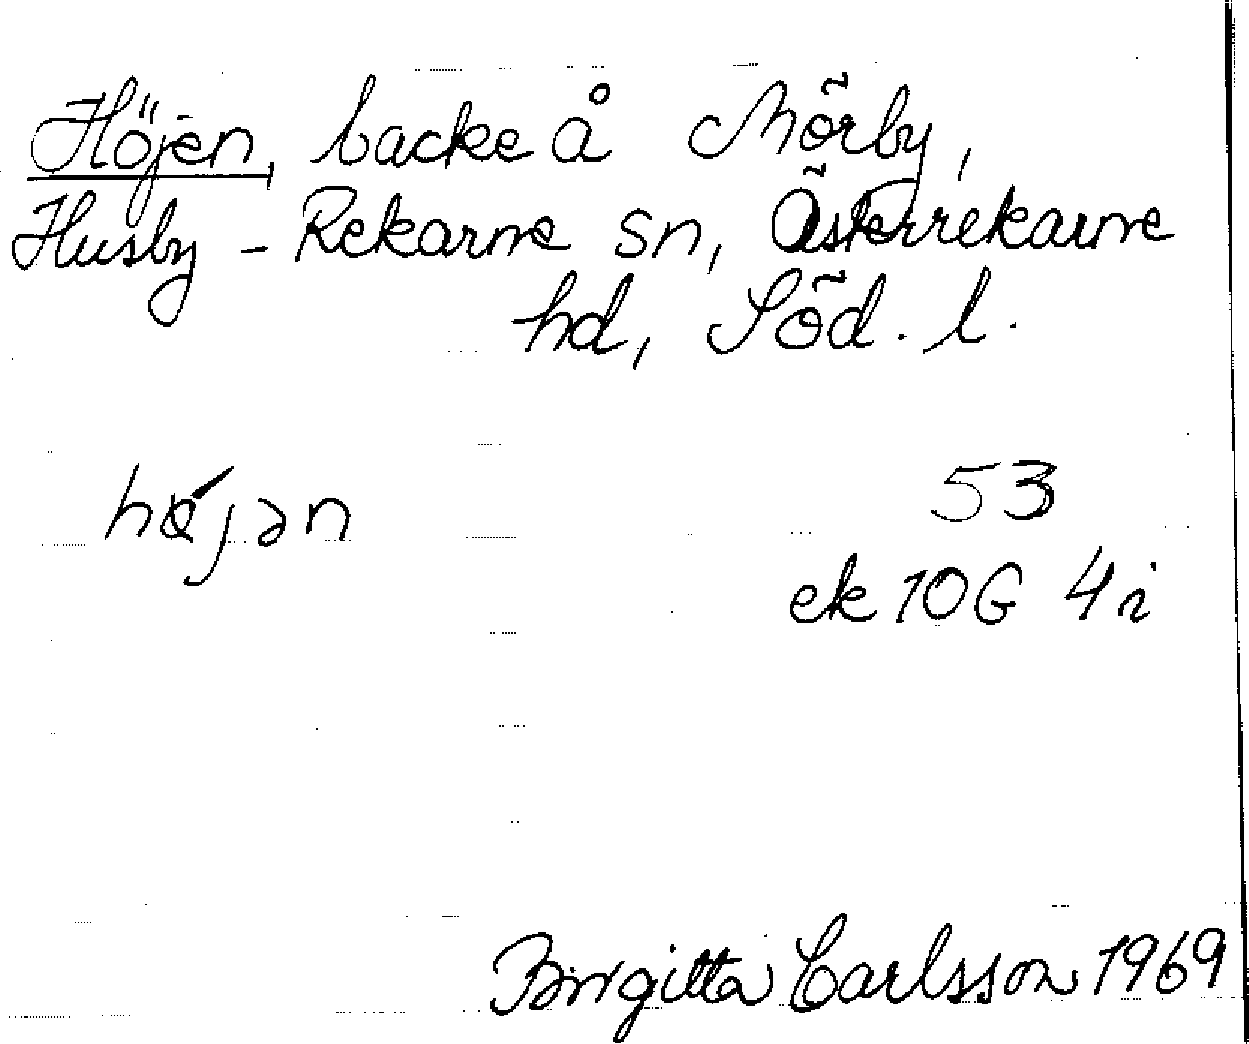 Höjen, backe å Mörby,
Husby-Rekarne sn, Österrekarne
hd, Söd. l.
hǿjən
53
ek 10G 4i
Birgitta Carlsson 1969